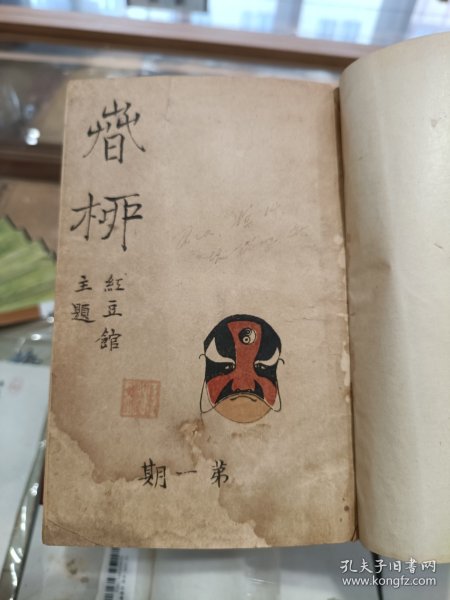 春柳
紅豆館
主題
第一期
孔夫子旧书网
www.kongfz.com